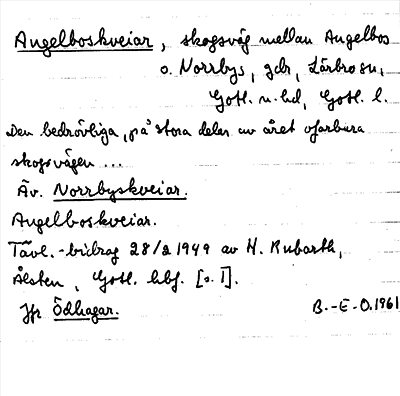 Angelboskveiar, skogsväg mellan Angelbos
o. Norrbys, gdr, Lärbro sn,
Gotl. n. hd, Gotl. l.
Den bedrövliga, på stora delar av året ofarbara
skogsvägen ...
Äv. Norrbyskveiar.
Angelboskveiar.
Tävl.-bidrag 28/2 1949 av H. Rubarth,
Alsten, Gotl. hbf. [s. 1].
Jfr Ödhagar.
B.-E-O. 1961